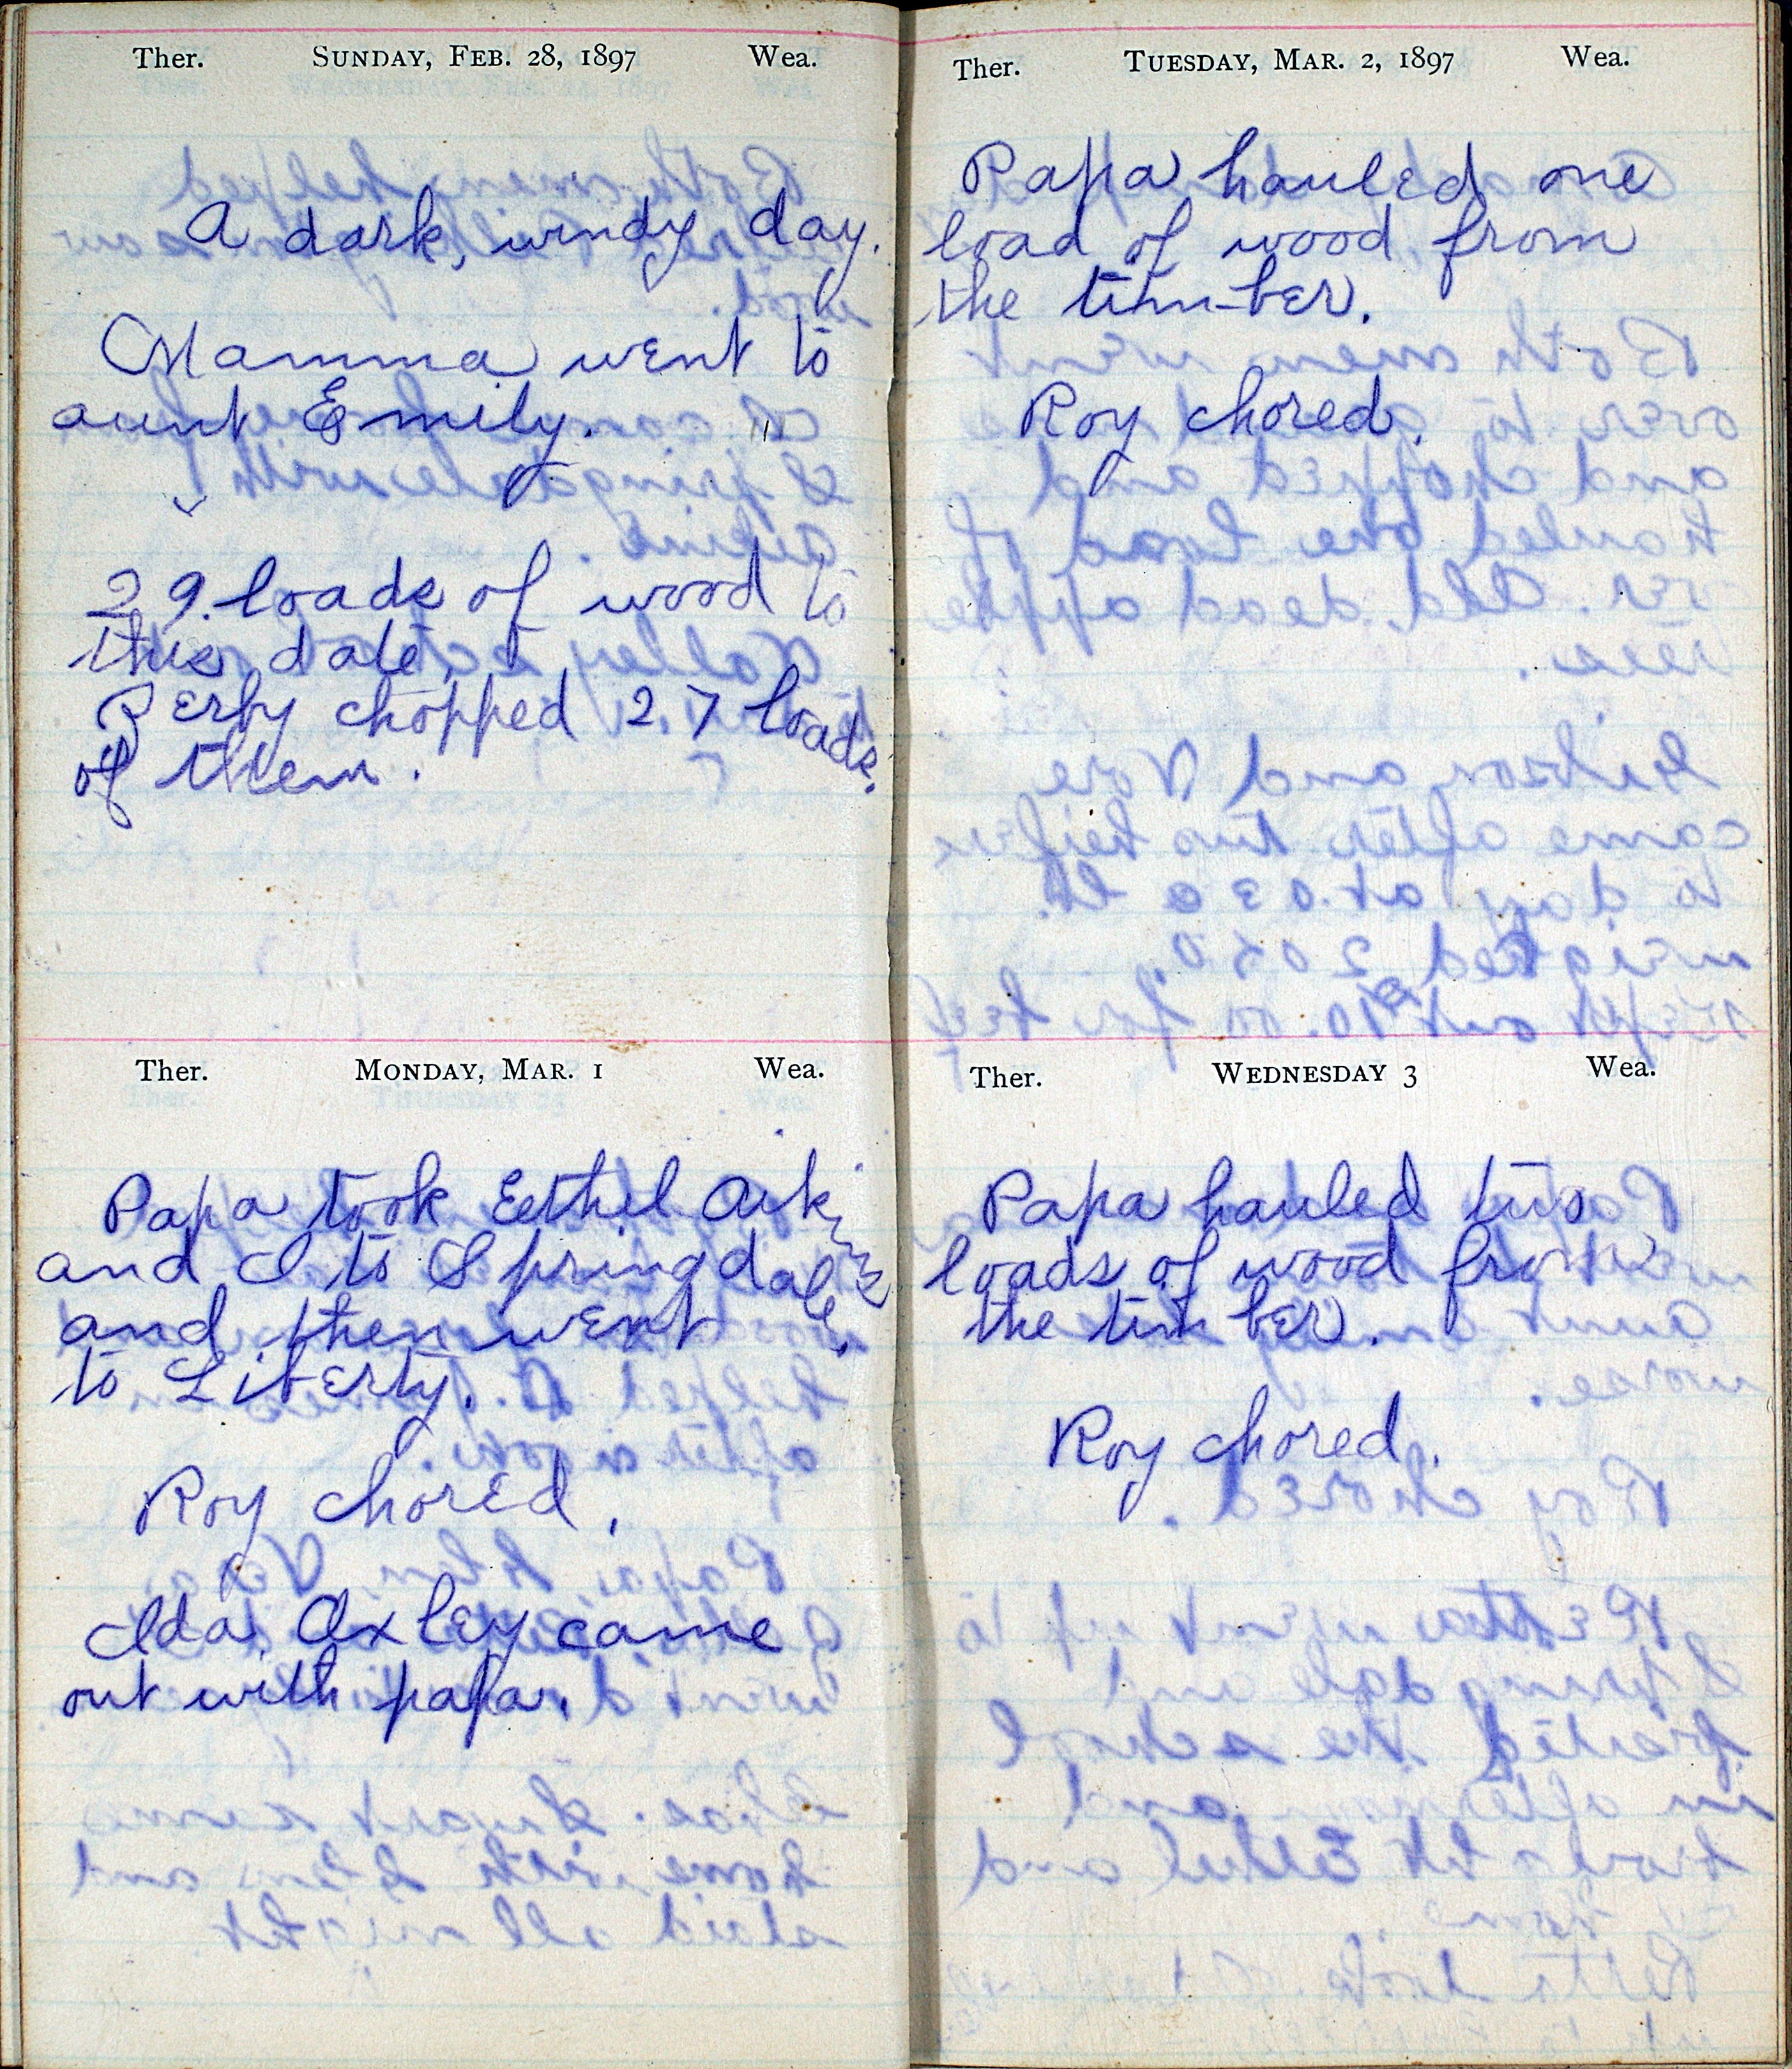 Ther. SUNDAY, FEB. 28, 1897 Wea.
A dark, windy day.
Mamma went to
aunt Emily.
29 loads of wood to
this date.
Perby chopped 27 loads
of them.
Ther. MONDAY, MAR. 1 Wea.
Papa took Eethel Arkins
and I to Springdale,
and then went
to Liberty.
Roy chored.
Ida Oxley came
out with papa.
Ther. TUESDAY, MAR. 2, 1897 Wea.
Papa hauled one
load of wood from
the timber.
Roy chored.
Ther. WEDNESDAY 3 Wea.
Papa hauled two
loads of wood from
the timber.
Roy chored.